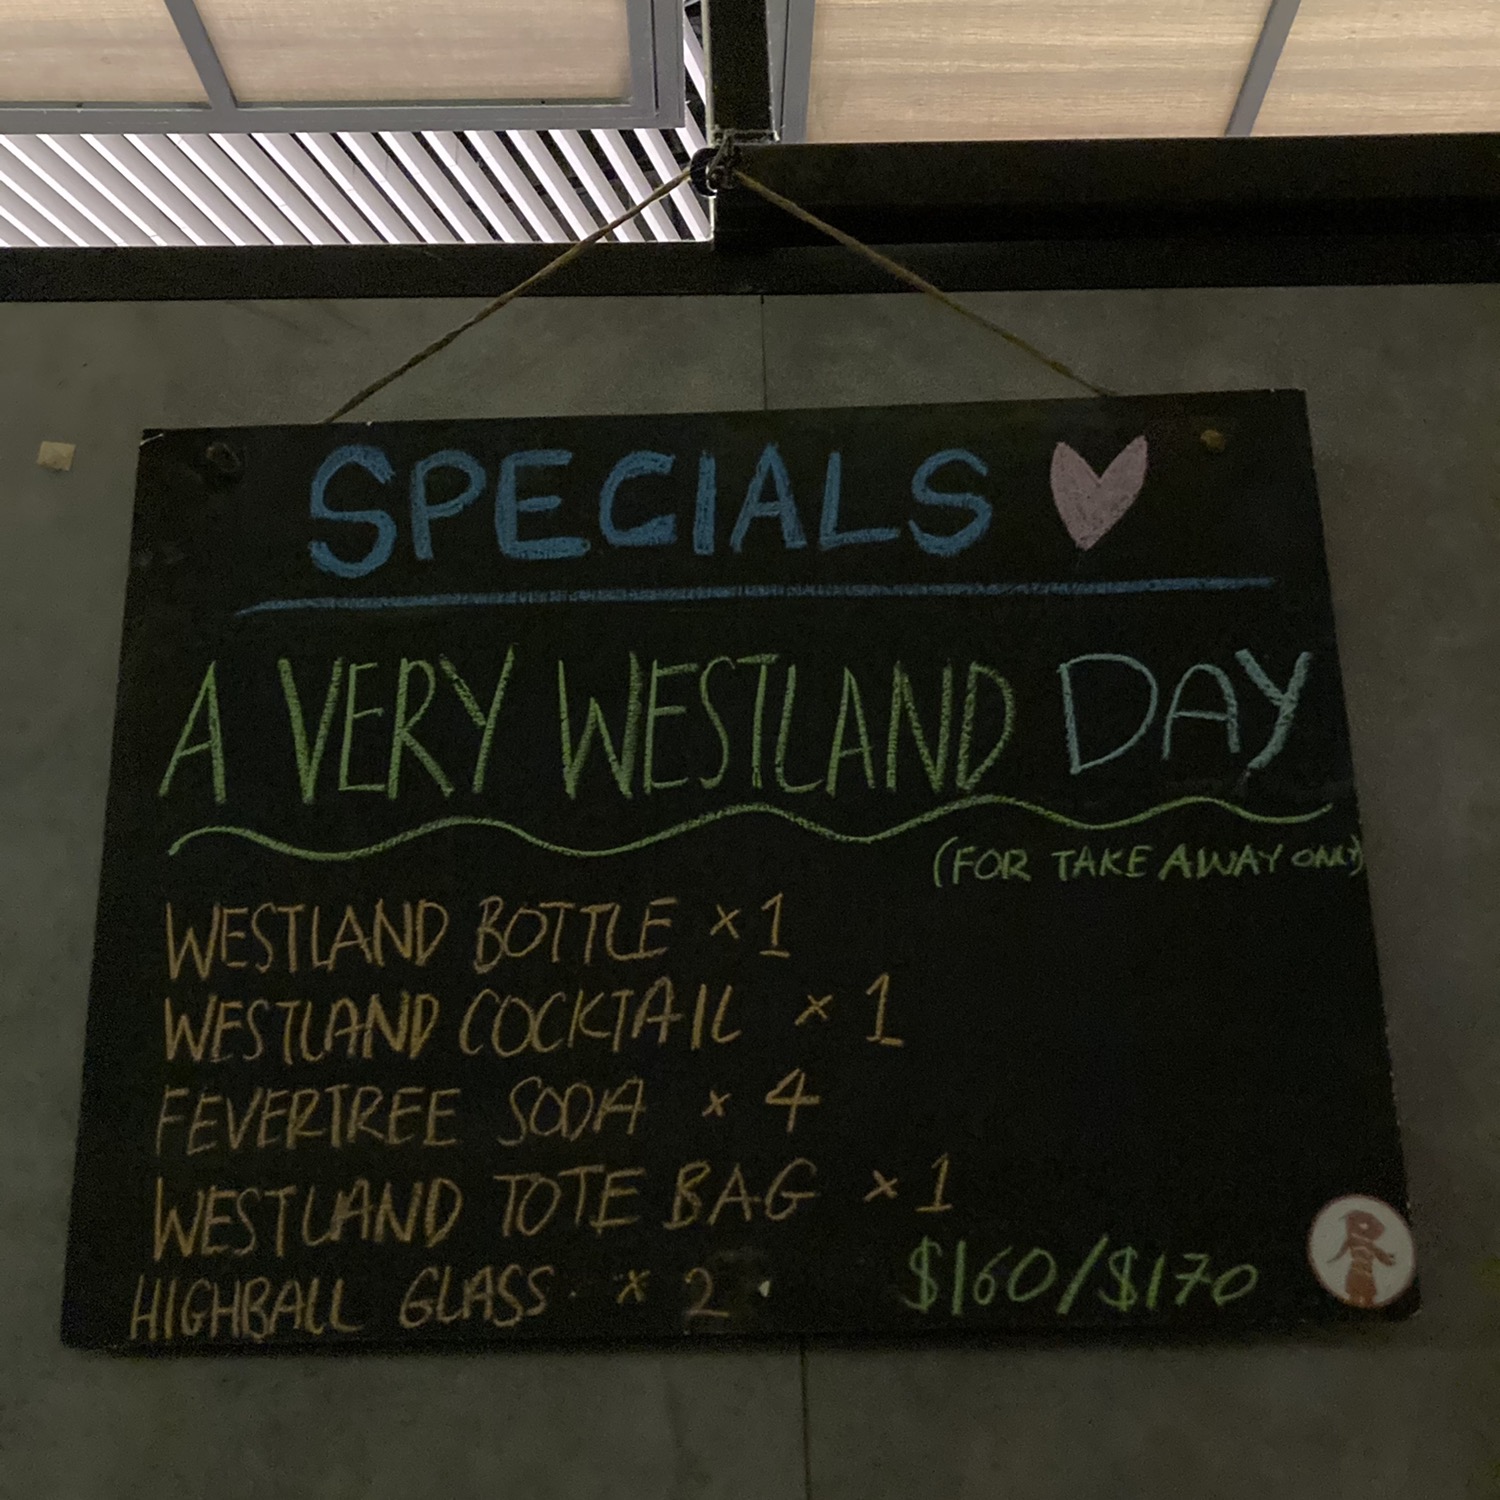 SPECIALS
A VERY WESTLAND DAY
(FOR TAKE AWAY ONLY)
WESTLAND BOTTLE x 1
WESTLAND COCKTAIL x 1
FEVERTREE SODA x 4
WESTLAND TOTE BAG x 1
HIGHBALL GLASS x 2
$160/$170